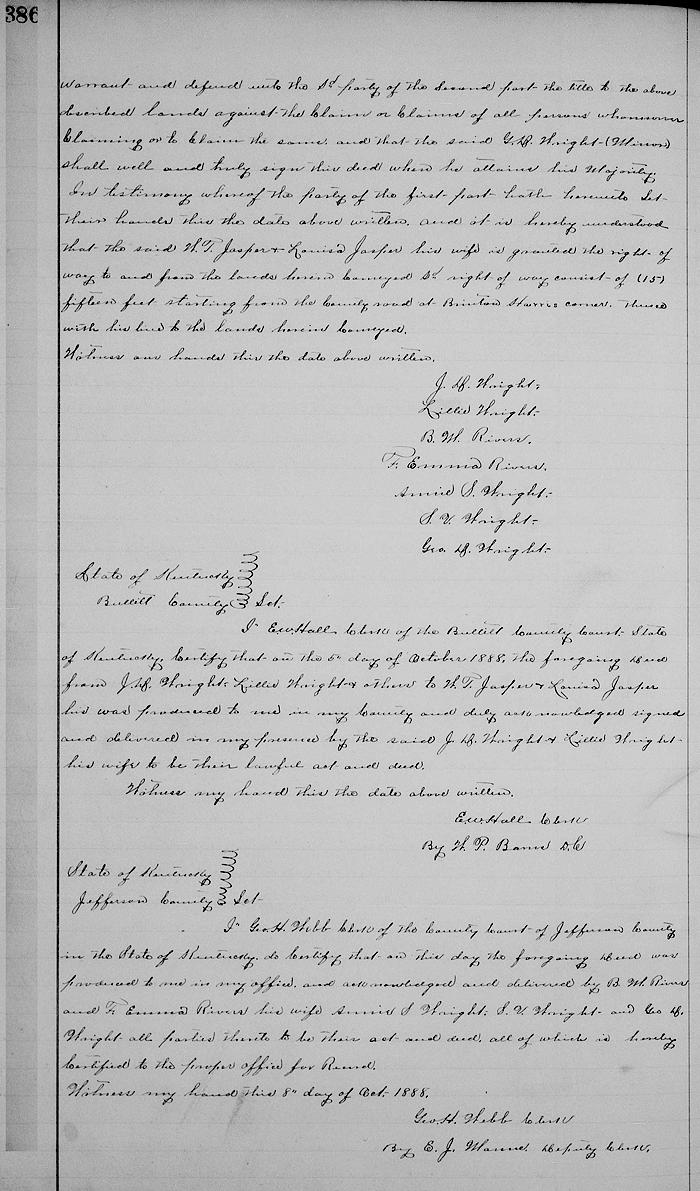 386
warrant and defend unto the Sd party of the Second part the title to the above
described lands against the Claim or Claims of all persons whomsoever
Claiming or to Claim the same. and that the said G. D. Wright (Minor)
shall well and truly sign this deed when he attains his Majority.
In testimony whereof the party of the first part hath hereunto Set
their hands this the date above written. and it is hereby understood
that the said W. T. Jasper & Louisa Jasper his wife is granted the right of
way to and from the lands herein Conveyed Sd right of way consist of (15)
fifteen feet starting from the County road at Brinton Harris corner. thence
with his line to the lands herein Conveyed.
Witness our hands this the date above written.
J. D. Wright
Lillie Wright
B. W. Rivers.
F. Emma Rivers.
Annie S. Wright
S. V. Wright
Geo. D. Wright
State of Kentucky
Bullitt County Sct.
I E.W. Hall Clerk of the Bullitt County Court State
of Kentucky. Certify that on the day of October 1888. the foregoing Deed
from J. D. Wright. Lillie Wright & others to W. T. Jasper & Louisa Jasper
his was produced to me in my County and duly acknowledged signed
and delivered in my presence by the said J. D. Wright & Lillie Wright
his wife to be their lawful act and deed.
Witness my hand this the date above written.
E.W. Hall Clerk
By W. P. D.C
State of Kentucky
Jefferson County Sct
I Geo. H. Webb Clerk of the County Court of Jefferson County
in the State of Kentucky. do Certify that on this day the foregoing Deed was
produced to me in my office. and acknowledged and delivered by B. W. Rivers
and F. Emma Rivers his wife Annie S Wright. S. V. Wright and Geo D.
Wright all parties thereto to be their act and deed. all of which is hereby
Certified to the proper office for Record.
Witness my hand this 8th day of Oct. 1888.
Geo. H. Webb Clerk
By E. J. Deputy Clerk.